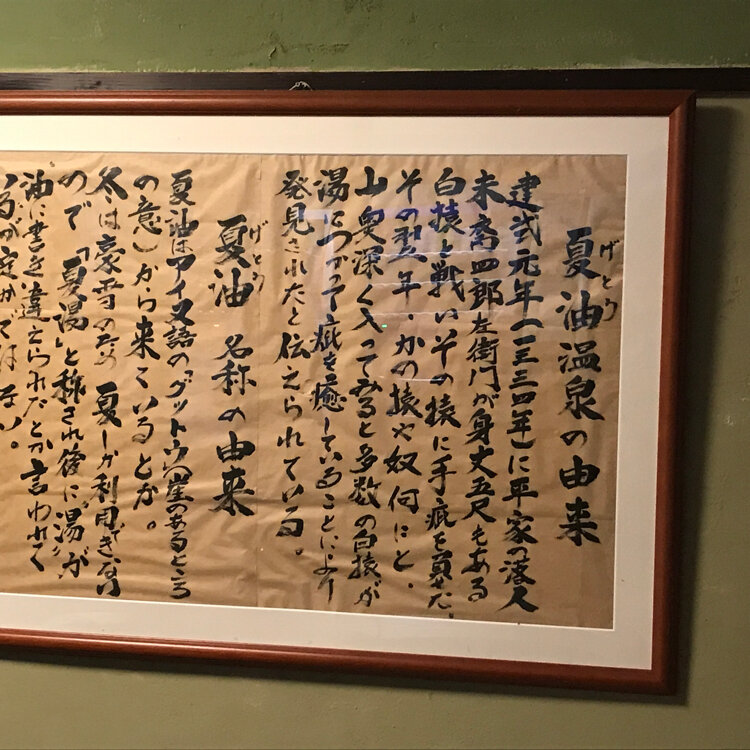 夏油温泉の由来
げとう
建武元年(一三三四年)に平家の落人
末裔四郎左衛門が身丈五尺もある
白猿と戦いその猿に手疵を負せた、
その翌年、かの猿や奴何にと、
山奥深く入ってみると多数の白猿が
湯につかって疵を癒していることにより
発見されたと伝えられている。
夏油 名称の由来
げとう
夏油はアイヌ語の「グットウ(崖のあるところ
の意)から来ているとか。
冬は豪雪のため夏しか利用できない
ので「夏湯」と称され後に"湯"が
油に書き違えられたとか言われて
いるが定かではない。